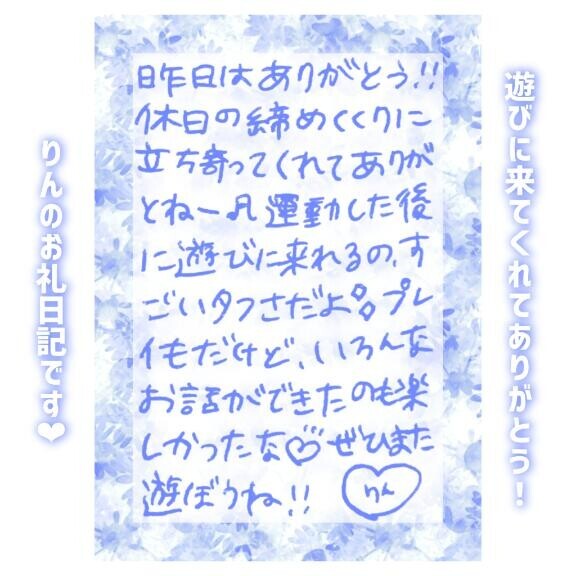 遊びに来てくれてありがとう！
昨日はありがとう!!
休日の締めくくりに
立ち寄ってくれてありが
とねー♪運動した後
に遊びに来れるの、す
ごいタフさだよ プレ
イもだけど、いろんな
お話ができたのも楽
しかったな♡ぜひまた
遊ぼうね!!
りん
りんのお礼日記です❤